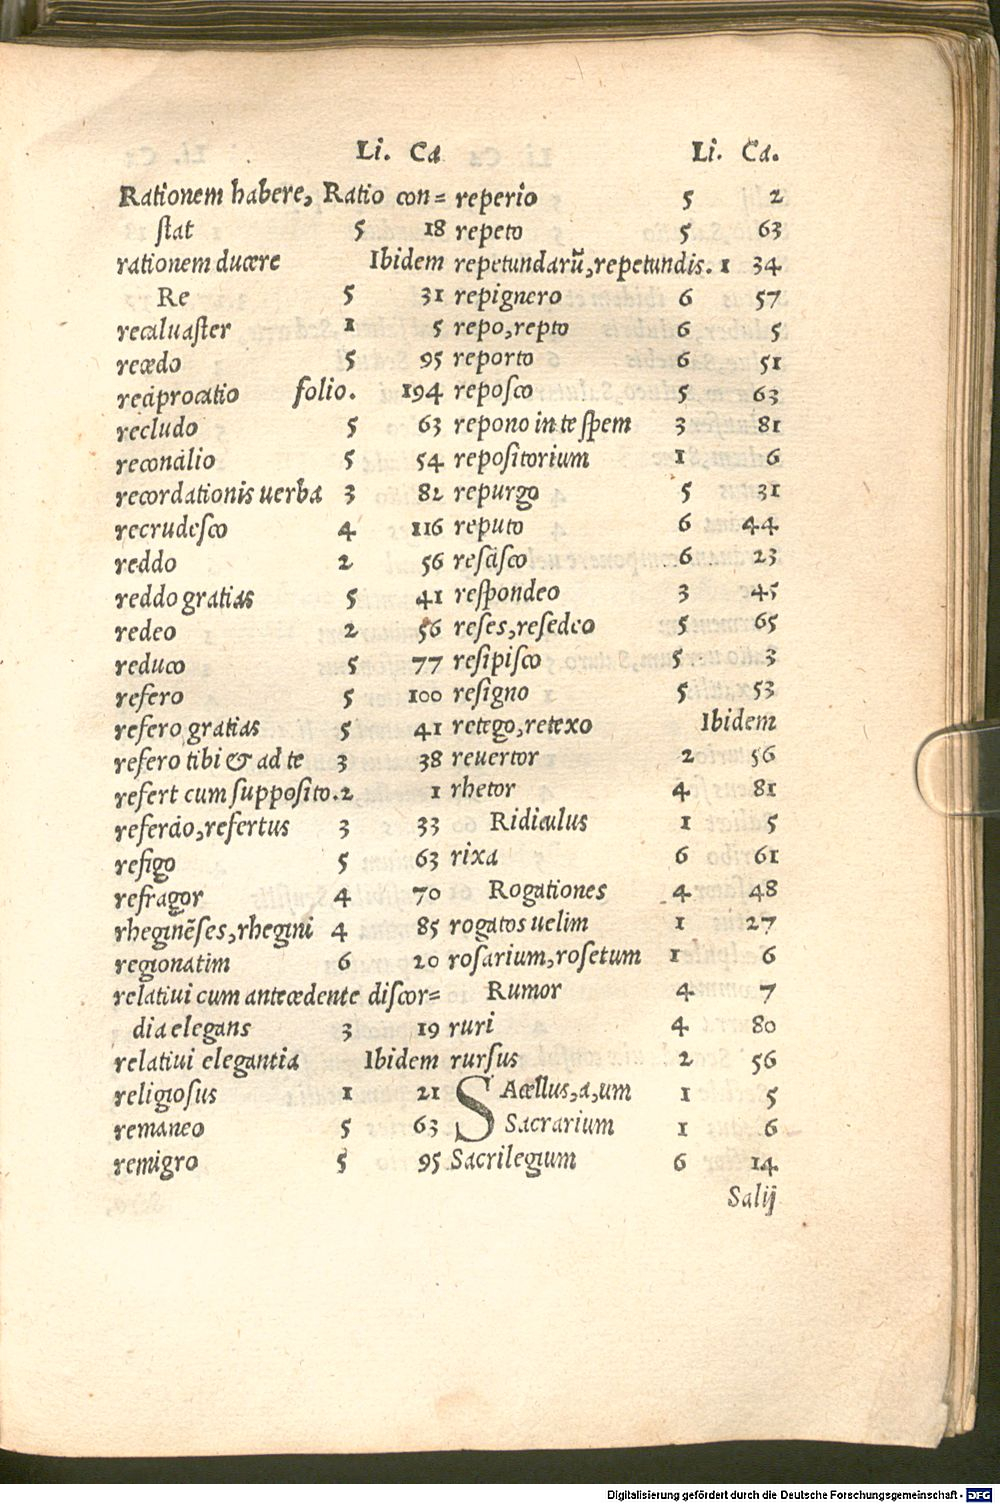 Li. Ca
Rationem habere, Ratio con=
stat 5 18
rationem ducere Ibidem
Re 5 31
recaluaster 1 5
recedo 5 95
reciprocatio folio. 194
recludo 5 63
reconcilio 5 54
recordationis uerba 3 82
recrudesco 4 116
reddo 2 56
reddo gratias 5 41
redeo 2 56
reduco 5 77
refero 5 100
refero gratias 5 41
refero tibi & ad te 3 38
refert cum supposito. 2 1
refercio, refertus 3 33
refigo 5 63
refragor 4 70
rheginẽses, rhegini 4 85
regionatim 6 20
relatiui cum antecedente discor=
dia elegans 3 19
relatiui elegantia Ibidem
religiosus 1 21
remaneo 5 63
remigro 5 95
Li. Ca.
reperio 5 2
repeto 5 63
repetundarũ, repetundis. 1 34
repignero 6 57
repo, repto 6 5
reporto 6 51
reposco 5 63
repono in te spem 3 81
repositorium 1 6
repurgo 5 31
reputo 6 44
rescisco 6 23
respondeo 3 45
reses, resedeo 5 65
resipisco 5 3
resigno 5 53
retego, retexo Ibidem
reuertor 2 56
rhetor 4 81
Ridiculus 1 5
rixa 6 61
Rogationes 4 48
rogatos uelim 1 27
rosarium, rosetum 1 6
Rumor 4 7
ruri 4 80
rursus 2 56
SAcellus, a, um 1 5
Sacrarium 1 6
Sacrilegium 6 14
Salij
Digitalisierung gefördert durch die Deutsche Forschungsgemeinschaft - DFG